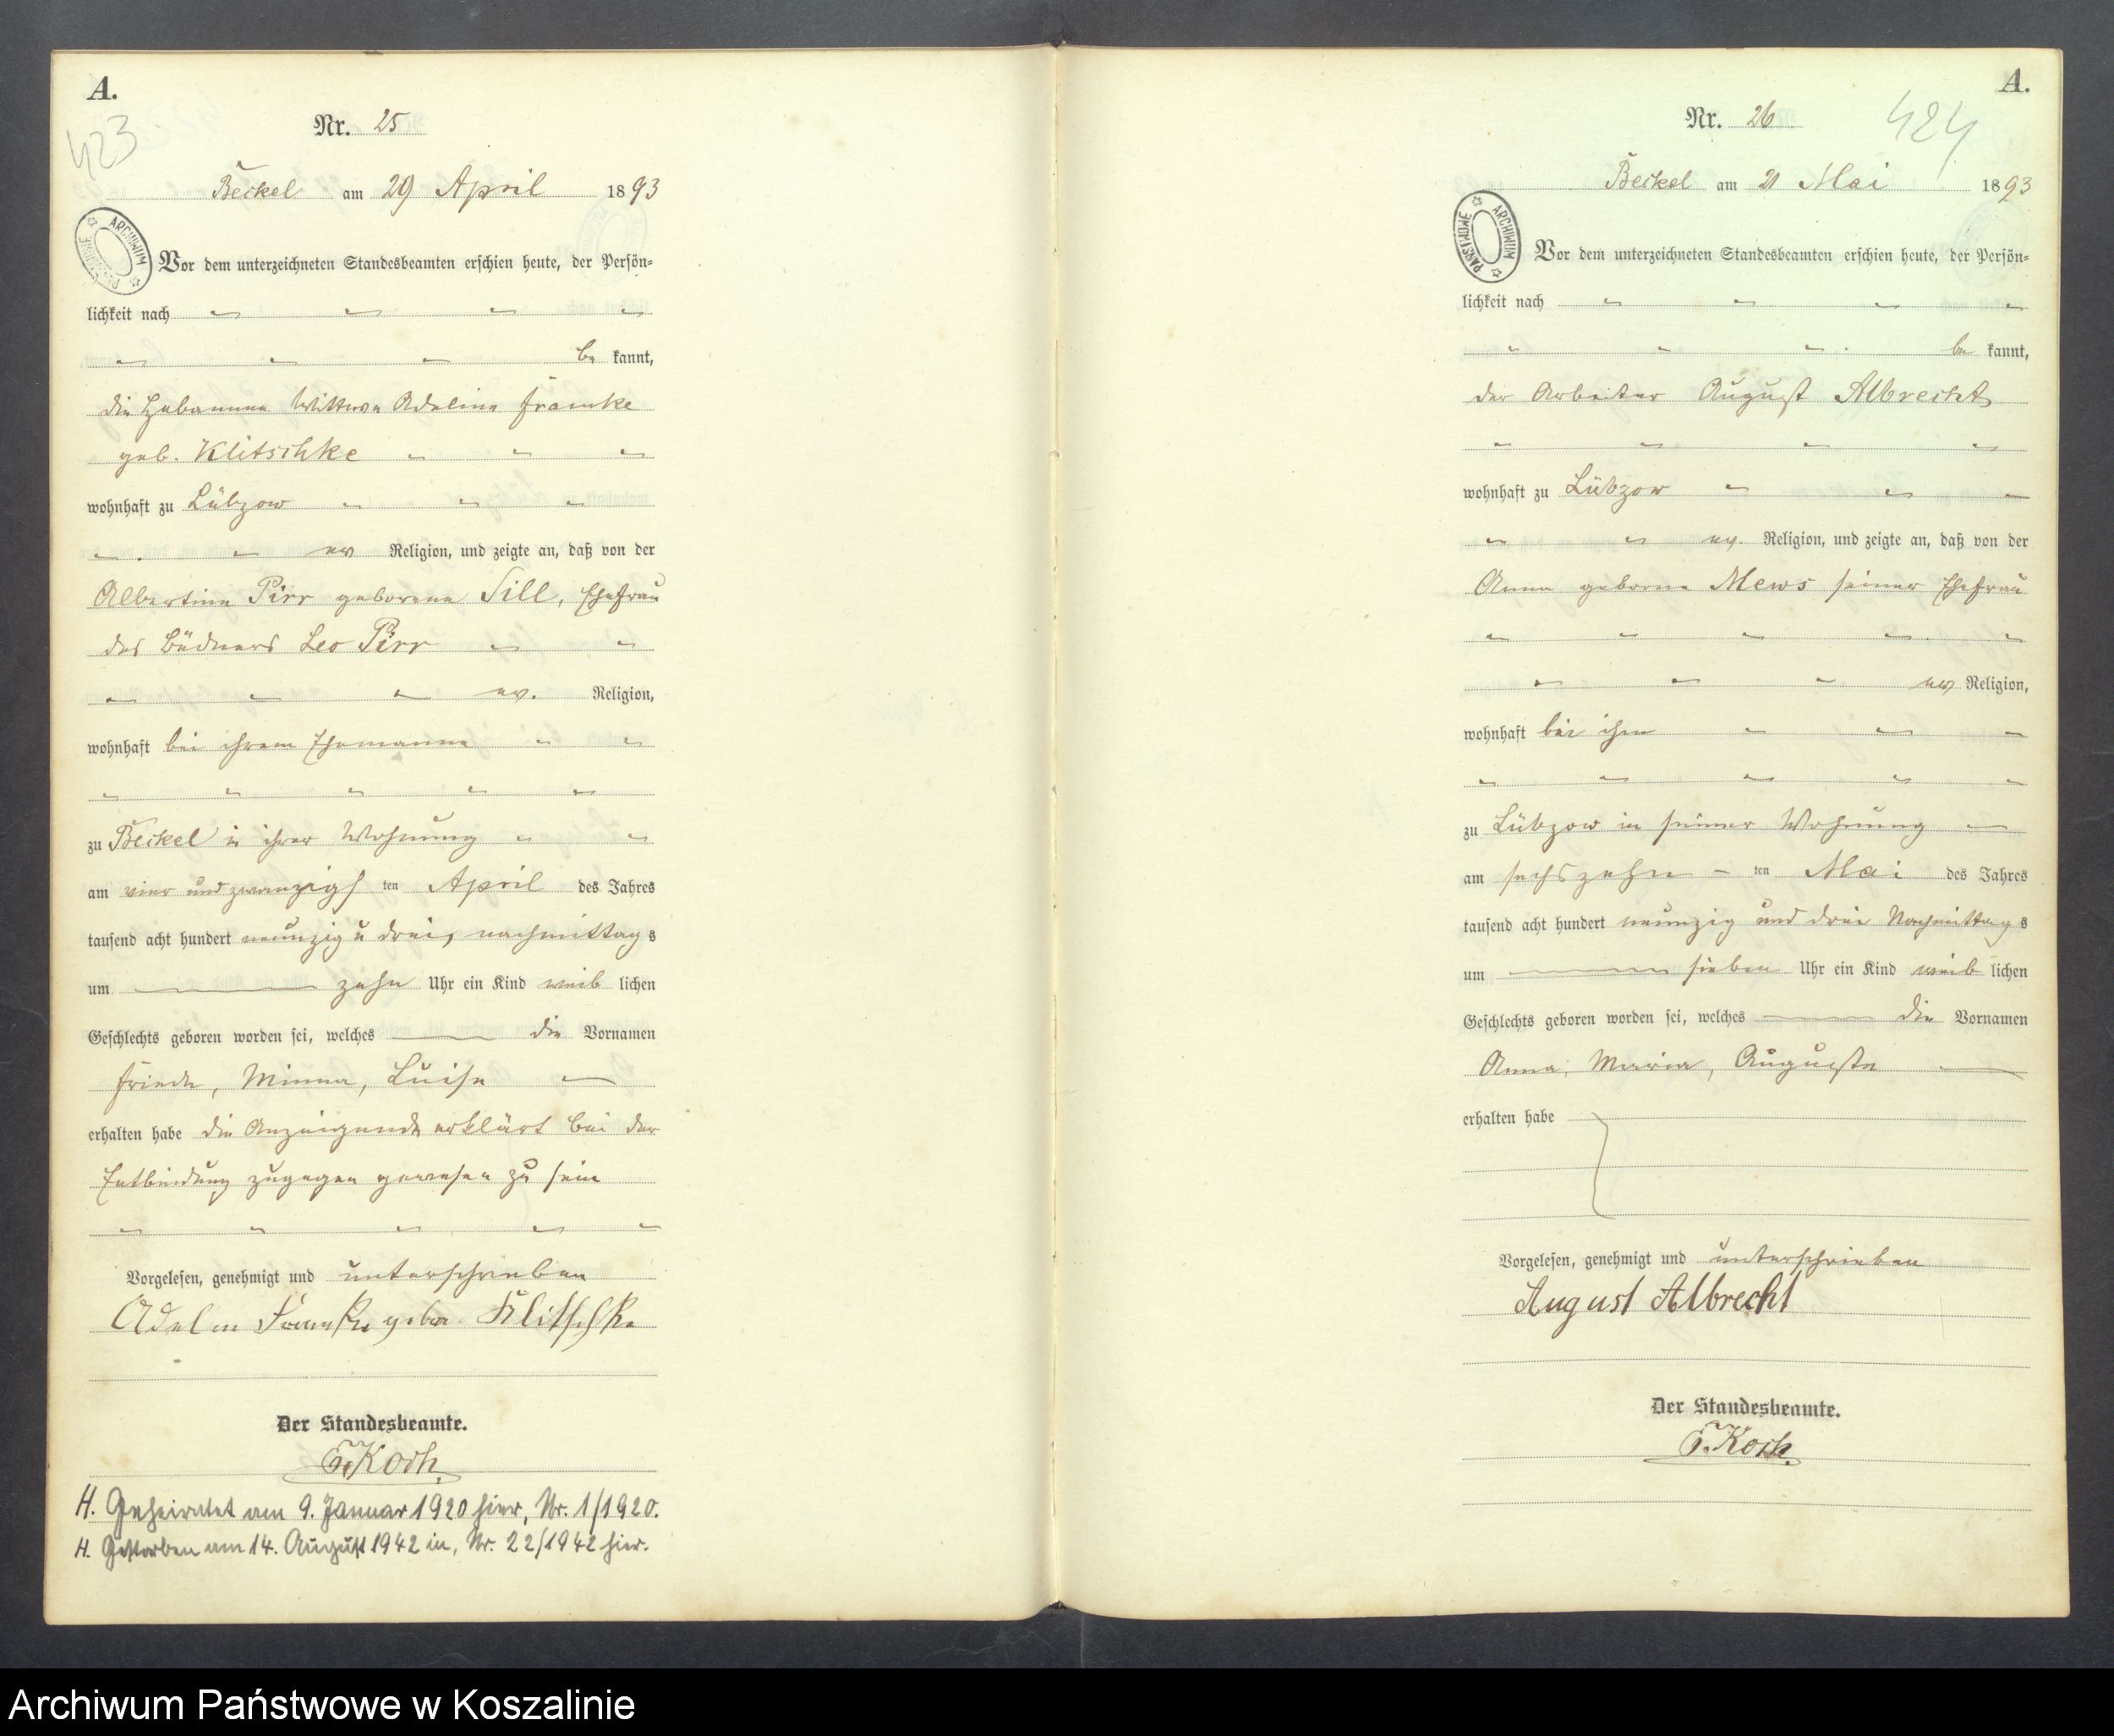 A.
423
Nr. 25
Beckel am 29 April 1893
ARCHIWUM PAŃSTWOWE
Vor dem unterzeichneten Standesbeamten erschien heute, der Persön-
lichkeit nach
be kannt,
die Hebamme Wittwe Adeline Framke
geb. Klitschke
wohnhaft zu Lübzow
ev Religion, und zeigte an, daß von der
Albertine Pirr geborene Sill, Ehefrau
des Büdners Leo Pirr
ev. Religion,
wohnhaft bei ihrem Ehemanne
zu Beckel in ihrer Wohnung
am vier und zwanzigs ten April des Jahres
tausend acht hundert neunzig u drei, nachmittag s
um zehn Uhr ein Kind weib lichen
Geschlechts geboren worden sei, welches die Vornamen
Friede, Minna, Luise
erhalten habe die Anzeigende erklärt bei der
Entbindung zugegen gewesen zu sein
Vorgelesen, genehmigt und unterschrieben
Adeline Framke gebor Klitschke
Der Standesbeamte.
F. Koch.
H. Geheiratet am 9. Januar 1920 hier, Nr. 1/1920.
H. Gestorben am 14. August 1942 in, Nr. 22/1942 hier.
A.
Nr. 26
424
Beckel am 21 Mai 1893
ARCHIWUM PAŃSTWOWE
Vor dem unterzeichneten Standesbeamten erschien heute, der Persön-
lichkeit nach
be kannt,
der Arbeiter August Albrecht
wohnhaft zu Lübzow
ev. Religion, und zeigte an, daß von der
Anna geborne Mews seiner Ehefrau
ev Religion,
wohnhaft bei ihm
zu Lübzow in seiner Wohnung
am sechszehn ten Mai des Jahres
tausend acht hundert neunzig und drei Nachmittag s
um sieben Uhr ein Kind weib lichen
Geschlechts geboren worden sei, welches die Vornamen
Anna, Maria, Auguste
erhalten habe
Vorgelesen, genehmigt und unterschrieben
August Albrecht
Der Standesbeamte.
F. Koch.
Archiwum Państwowe w Koszalinie